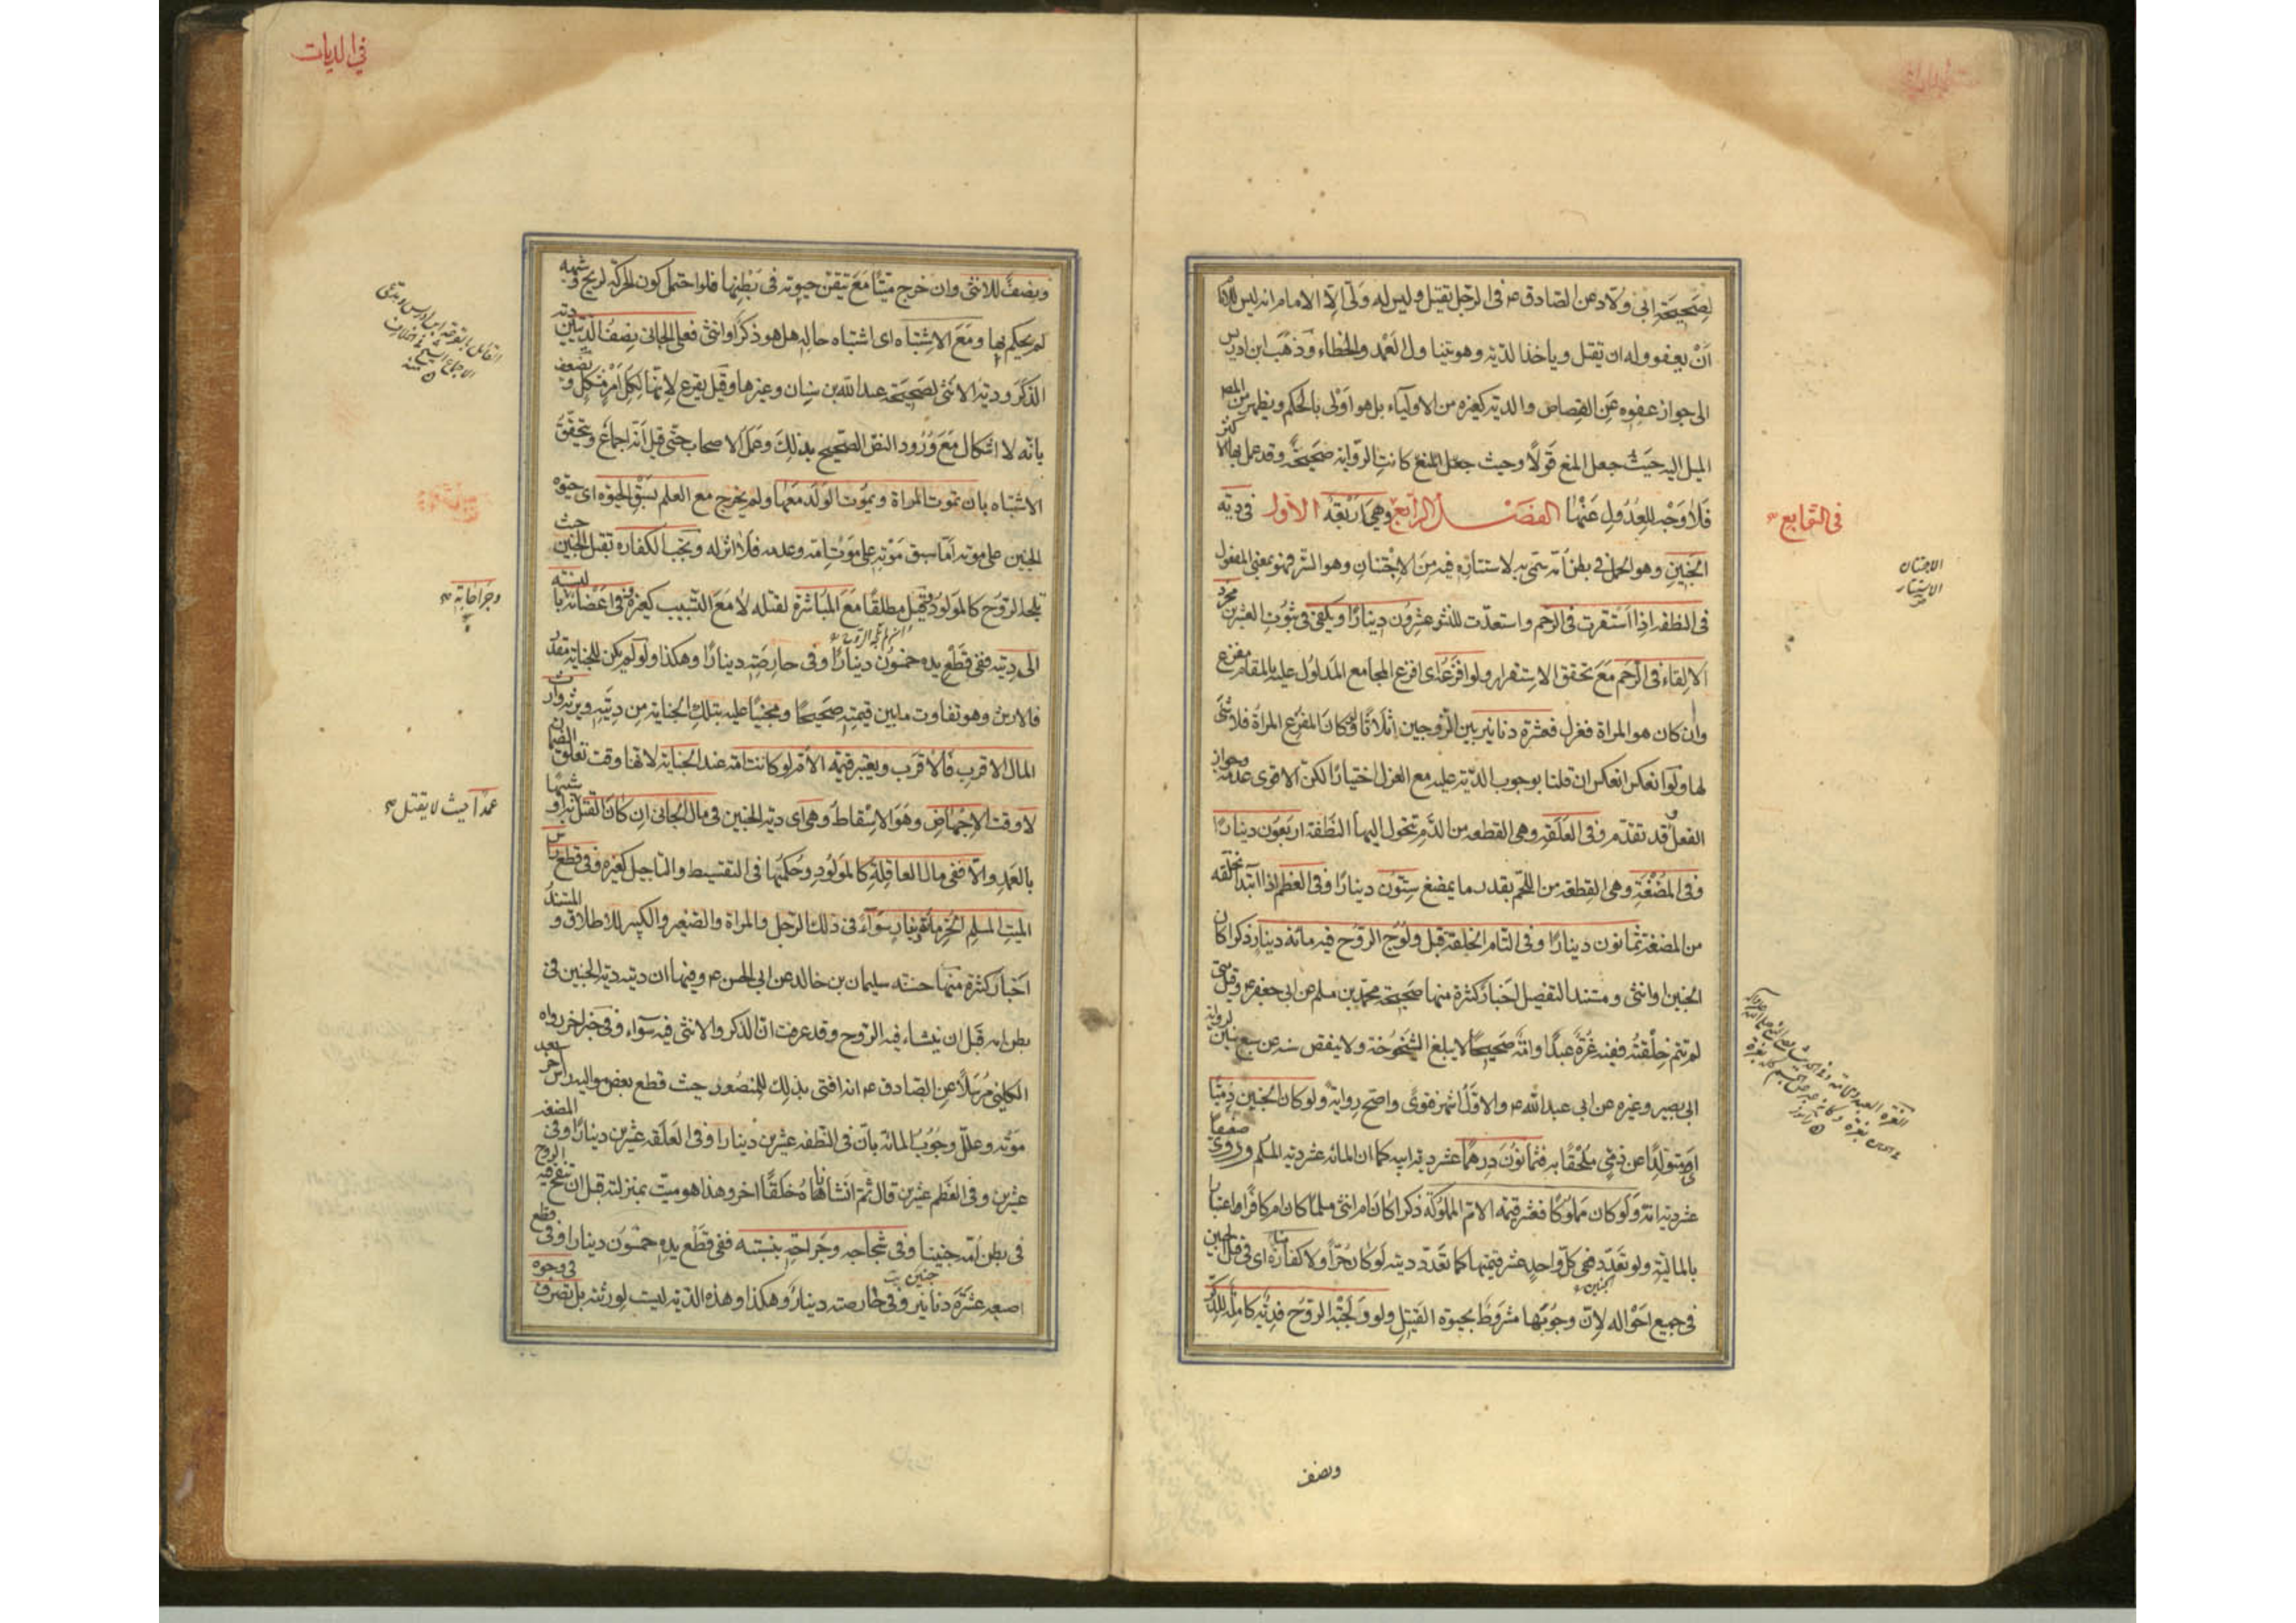 لصحيحة ابى ولاد عن الصادق ع فى الرجل يقتل وليس له ولى الا الامام انه ليس للامام
ان يعفو وله ان يقتل وياخذ الدية وهو يتناول العمد والخطاء وذهب ابن ادريس
الى جواز عفوه عن القصاص والدية كغيره من الاولياء بل هو اولى بالحكم ويظهر من المص
الميل اليه حيث جعل المنع قولا وحيث جعل المنع كانت الرواية صحيحة وقد عمل بها الاكثر
فلا وجه للعدول عنها الفصل الرابع وهى اربعة الاول فى دية
فى التوابع
الجنين وهو الحمل فى بطن امه سمى به لاستتاره فيه من الاجتنان وهو الستر فهو بمعنى المفعول
الاجتنان
الاستتار
فى النطفة اذا استقرت فى الرحم واستعدت للنشو عشرون دينارا ويكفى فى ثبوت العشرين مجرد
الالقاء فى الرحم مع تحقق الاستقرار ولو افزعه اى افزع المجامع المدلول عليه بالمقام مفزع
وان كان هو المراة فعزل فعشرة دنانير بين الزوجين اثلاثا ولو كان المفزع المراة فلا شئ
لها ولو انعكس انعكس ان قلنا بوجوب الدية عليه مع العزل اختيارا لكن الاقوى عدمه وجواز
الفعل وقد تقدم وفى العلقة وهى القطعة من الدم تتحول اليها النطفة اربعون دينارا
وفى المضغة وهى القطعة من اللحم بقدر ما يمضغ ستون دينارا وفى العظم اذا ابتدا تخلقه
من المضغة ثمانون دينارا وفى التام الخلقة قبل ولوج الروح فيه مائة دينار ذكرا كان
الجنين او انثى ومستند التفصيل اخبار كثيرة منها صحيحة محمد بن مسلم عن ابى جعفر ع وقيل متى
لم تتم خلقته ففيه غرة عبدا او امة صحيحا لا يبلغ الشيخوخة ولا ينقص سنه عن سبع سنين لرواية
ابى بصير وغيره عن ابى عبد الله ع والاول اشهر فتوى واصح رواية ولو كان الجنين ذميا
اى متولدا عن ذمى ملحقا به فثمانون درهما عشر دية ابيه كما ان المائة عشر دية المسلم وروى ضعيفا
عشر دية امه ولو كان مملوكا فعشر قيمة الام المملوكة ذكرا كان ام انثى مسلما كان ام كافرا اعتبارا
بالمالية ولو تعدد ففى كل واحد عشر قيمتها كما تعدد ديته لو كان حرا ولا كفارة هنا اى فى قتل الجنين
فى جميع احواله لان وجوبها مشروط بحيوة القتيل ولو ولجته الروح فدية كاملة للذكر
الجنين
ونصف
فى الديات
ونصف للانثى وان خرج ميتا مع تيقن حيوته فى بطنها فلو احتمل كون الحركة لريح وشبهه
لم يحكم بها ومع الاشتباه اى اشتباه حاله هل هو ذكر او انثى فعلى الجانى نصف الديتين دية
الذكر ودية الانثى لصحيحة عبد الله بن سنان وغيرها وقيل يقرع لانها لكل امر مشكل ويضعف
بانه لا اشكال مع ورود النص الصحيح بذلك وعمل الاصحاب حتى قيل انه اجماع ويتحقق
الاشتباه بان تموت المراة ويموت الولد معها ولم يخرج مع العلم بسبق الحيوة اى حيوة
الجنين على موته اما سبق موته على موت امه وعدمه فلا اثر له وتجب الكفارة بقتل الجنين حيث
تلجه الروح كالمولود وقيل مطلقا مع المباشرة لقتله لا مع التسبيب كغيره وفى اعضائه بالنسبة
وجراحاته
الى ديته ففى قطع يده خمسون دينارا وفى حارصته دينارا وهكذا ولو لم يكن للجناية مقدر
فالارش وهو تفاوت ما بين قيمته صحيحا ومجنيا عليه بتلك الجناية من ديته ويرثه وارث
المال الاقرب فالاقرب ويعتبر قيمة الام لو كانت امة عند الجناية لانها وقت تعلق الضمان
لا وقت الاجهاض وهو الاسقاط وهى اى دية الجنين فى مال الجانى ان كان القتل عمدا او شبيها
عمدا حيث لا يقتل
بالعمد والا ففى مال العاقلة كالمولود وحكمها فى التقسيط والتاجيل كغيره وفى قطع راس
الميت المسلم الحر مائة دينار سواء فى ذلك الرجل والمراة والصغير والكبير للاطلاق والمستند
اخبار كثيرة منها حسنة سليمان بن خالد عن ابى الحسن ع وفيها ان ديته دية الجنين فى
بطن امه قبل ان ينشاء فيه الروح وقد عرفت ان الذكر والانثى فيه سواء وفى خبر اخر رواه
الكلينى مرسلا عن الصادق ع انه افتى بذلك للمنصور حيث قطع بعض مواليه راس اخر بعد
موته وعلل وجوب المائة بان فى النطفة عشرين دينارا وفى العلقة عشرين دينارا وفى المضغة
عشرين وفى العظم عشرين قال ثم انشاناه خلقا اخر وهذا هو ميت بمنزلته قبل ان تنفخ فيه الروح
فى بطن امه جنينا وفى شجاجه وجراحه بنسبته ففى قطع يده خمسون دينارا وفى قطع
اصبعه عشرة دنانير وفى حارصته دينار وهكذا وهذه الدية ليست لورثته بل تصرف فى وجوه